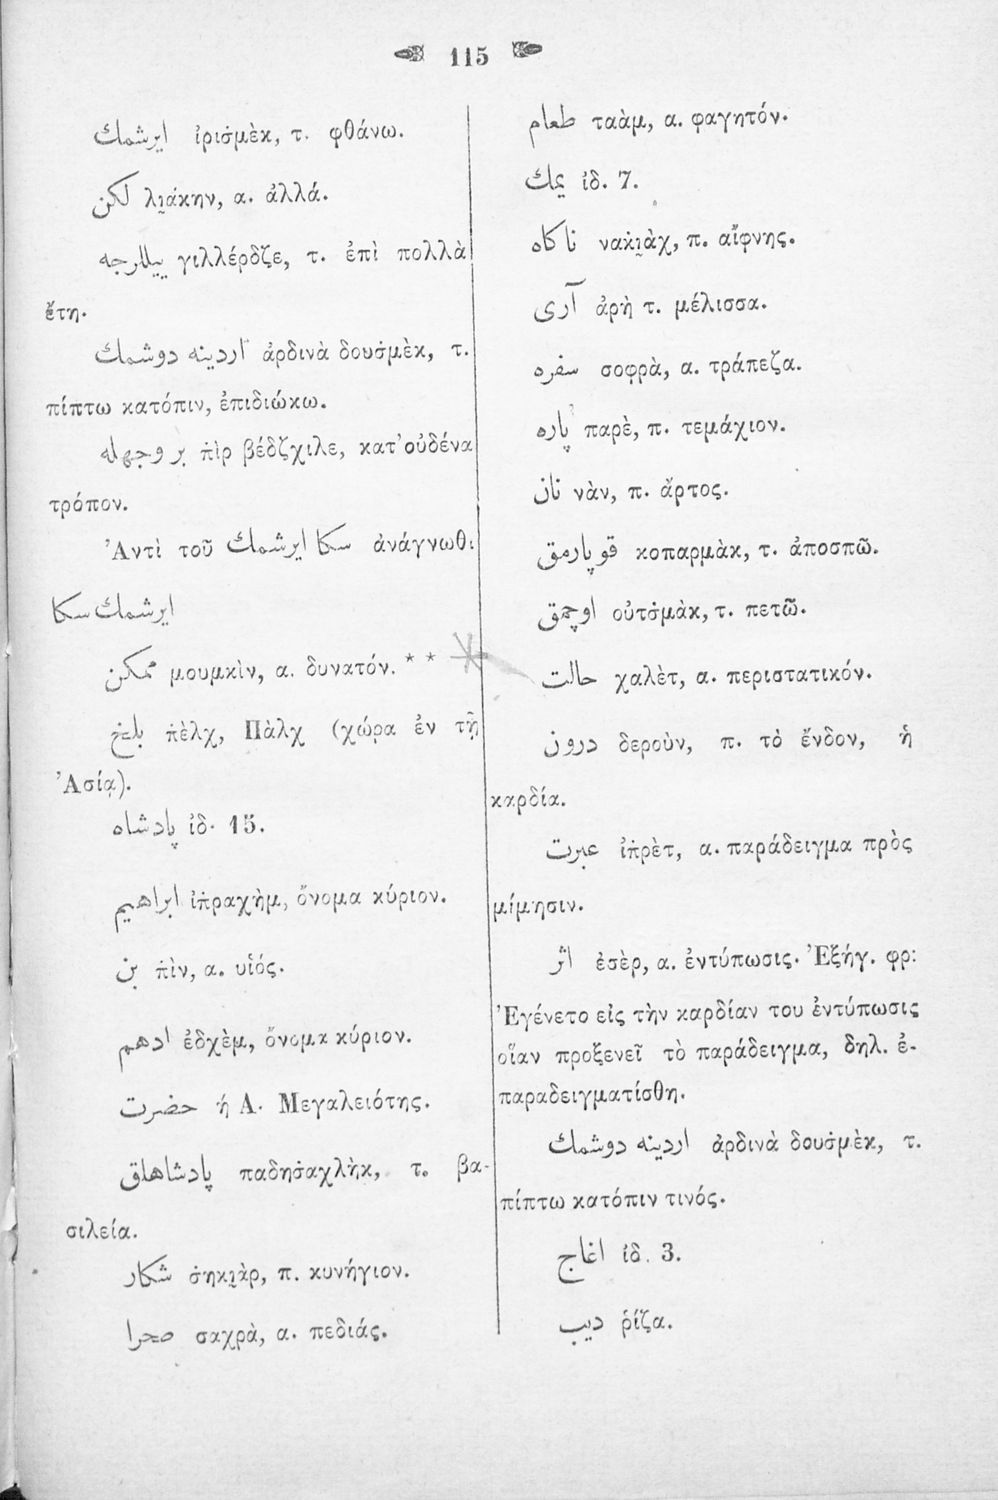 115
ايرشمك ἰρισ̇μὲκ, τ. φθάνω.
لكن λι̯άκην, α. ἀλλά.
ييللرجه γιλλέρδζε, τ. ἐπὶ πολλὰ
ἔτη.
اردينه دوشمك ἀρδινὰ δουσ̇μὲκ, τ.
πίπτω κατόπιν, ἐπιδιώκω.
بر وجهله π̇ὶρ βέδζχιλε, κατ' οὐδένα
τρόπον.
Ἀντὶ τοῦ سكا ايرشمك ἀνάγνωθι
ايرشمك سكا
ممكن μουμκὶν, α. δυνατόν. * *
بلخ π̇ὲλχ, Πὰλχ (χώρα ἐν τῇ
Ἀσίᾳ).
پادشاه ἰδ. 15.
ابراهيم ἰπ̇ραχὴμ, ὄνομα κύριον.
بن π̇ὶν, α. υἱός.
ادهم ἐδχὲμ, ὄνομα κύριον.
حضرت ἡ Α. Μεγαλειότης.
پادشاهلق παδησ̇αχλὴκ, τ. βα-
σιλεία.
شكار σ̇ηκι̯ὰρ, π. κυνήγιον.
صحرا σαχρὰ, α. πεδιάς.
طعام ταὰμ, α. φαγητόν.
يمك ἰδ. 7.
ناكاه νακι̯ὰχ, π. αἴφνης.
آرى ἀρὴ τ. μέλισσα.
سفره σοφρὰ, α. τράπεζα.
پاره παρὲ, π. τεμάχιον.
نان νὰν, π. ἄρτος.
قوپارمق κοπαρμὰκ, τ. ἀποσπῶ.
اوچمق οὐτσ̇μὰκ, τ. πετῶ.
حالت χαλὲτ, α. περιστατικόν.
درون δεροὺν, π. τὸ ἔνδον, ἡ
καρδία.
عبرت ἰπ̇ρὲτ, α. παράδειγμα πρὸς
μίμησιν.
اثر ἐσὲρ, α. ἐντύπωσις. Ἐξήγ. φρ:
Ἐγένετο εἰς τὴν καρδίαν του ἐντύπωσις
οἵαν προξενεῖ τὸ παράδειγμα, δηλ. ἐ-
παραδειγματίσθη.
اردينه دوشمك ἀρδινὰ δουσ̇μὲκ, τ.
πίπτω κατόπιν τινός.
اغاج ἰδ. 3.
ديب ῥίζα.